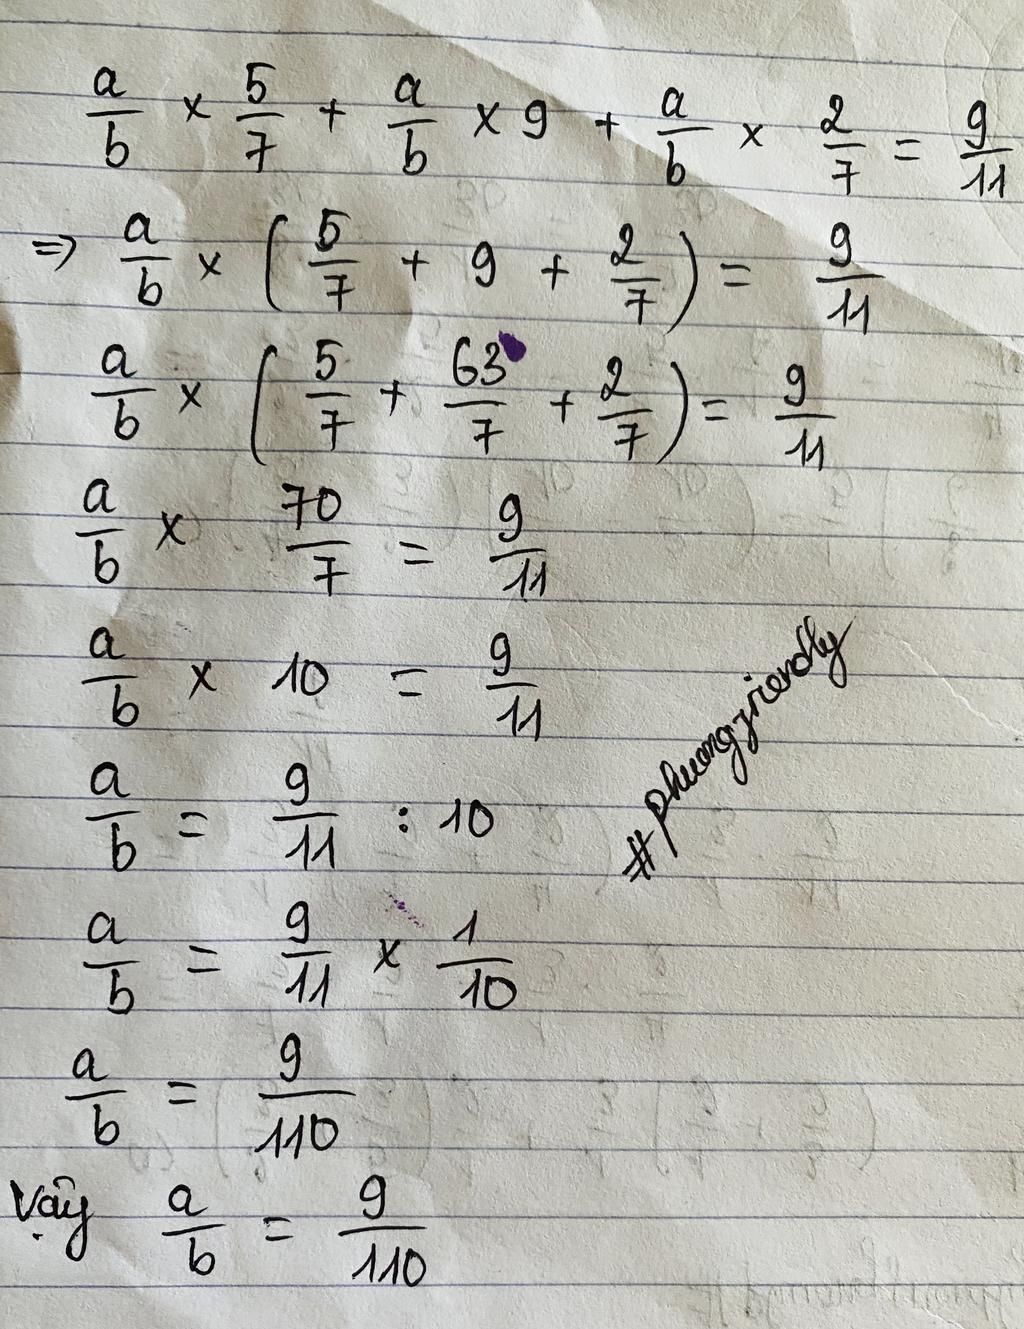 a/b × 5/7 + a/b × 9 + a/b × 2/7 = 9/11
⇒ a/b × (5/7 + 9 + 2/7) = 9/11
a/b × (5/7 + 63/7 + 2/7) = 9/11
a/b × 70/7 = 9/11
a/b × 10 = 9/11
a/b = 9/11 : 10
#phuongfriendly
a/b = 9/11 × 1/10
a/b = 9/110
Vậy a/b = 9/110